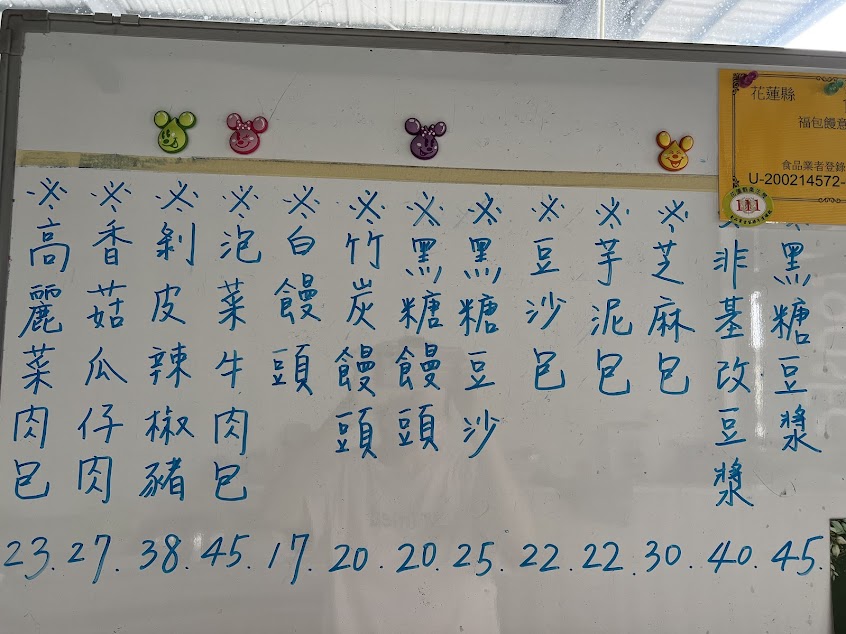 ※高麗菜肉包 23.
※香菇瓜仔肉 27.
※剝皮辣椒豬 38.
※泡菜牛肉包 45.
※白饅頭 17.
※竹炭饅頭 20.
※黑糖饅頭 20.
※黑糖豆沙 25.
※豆沙包 22.
※芋泥包 22.
※芝麻包 30.
非基改豆漿 40.
黑糖豆漿 45.
花蓮縣
福包饅意
食品業者登錄
U-200214572-
111